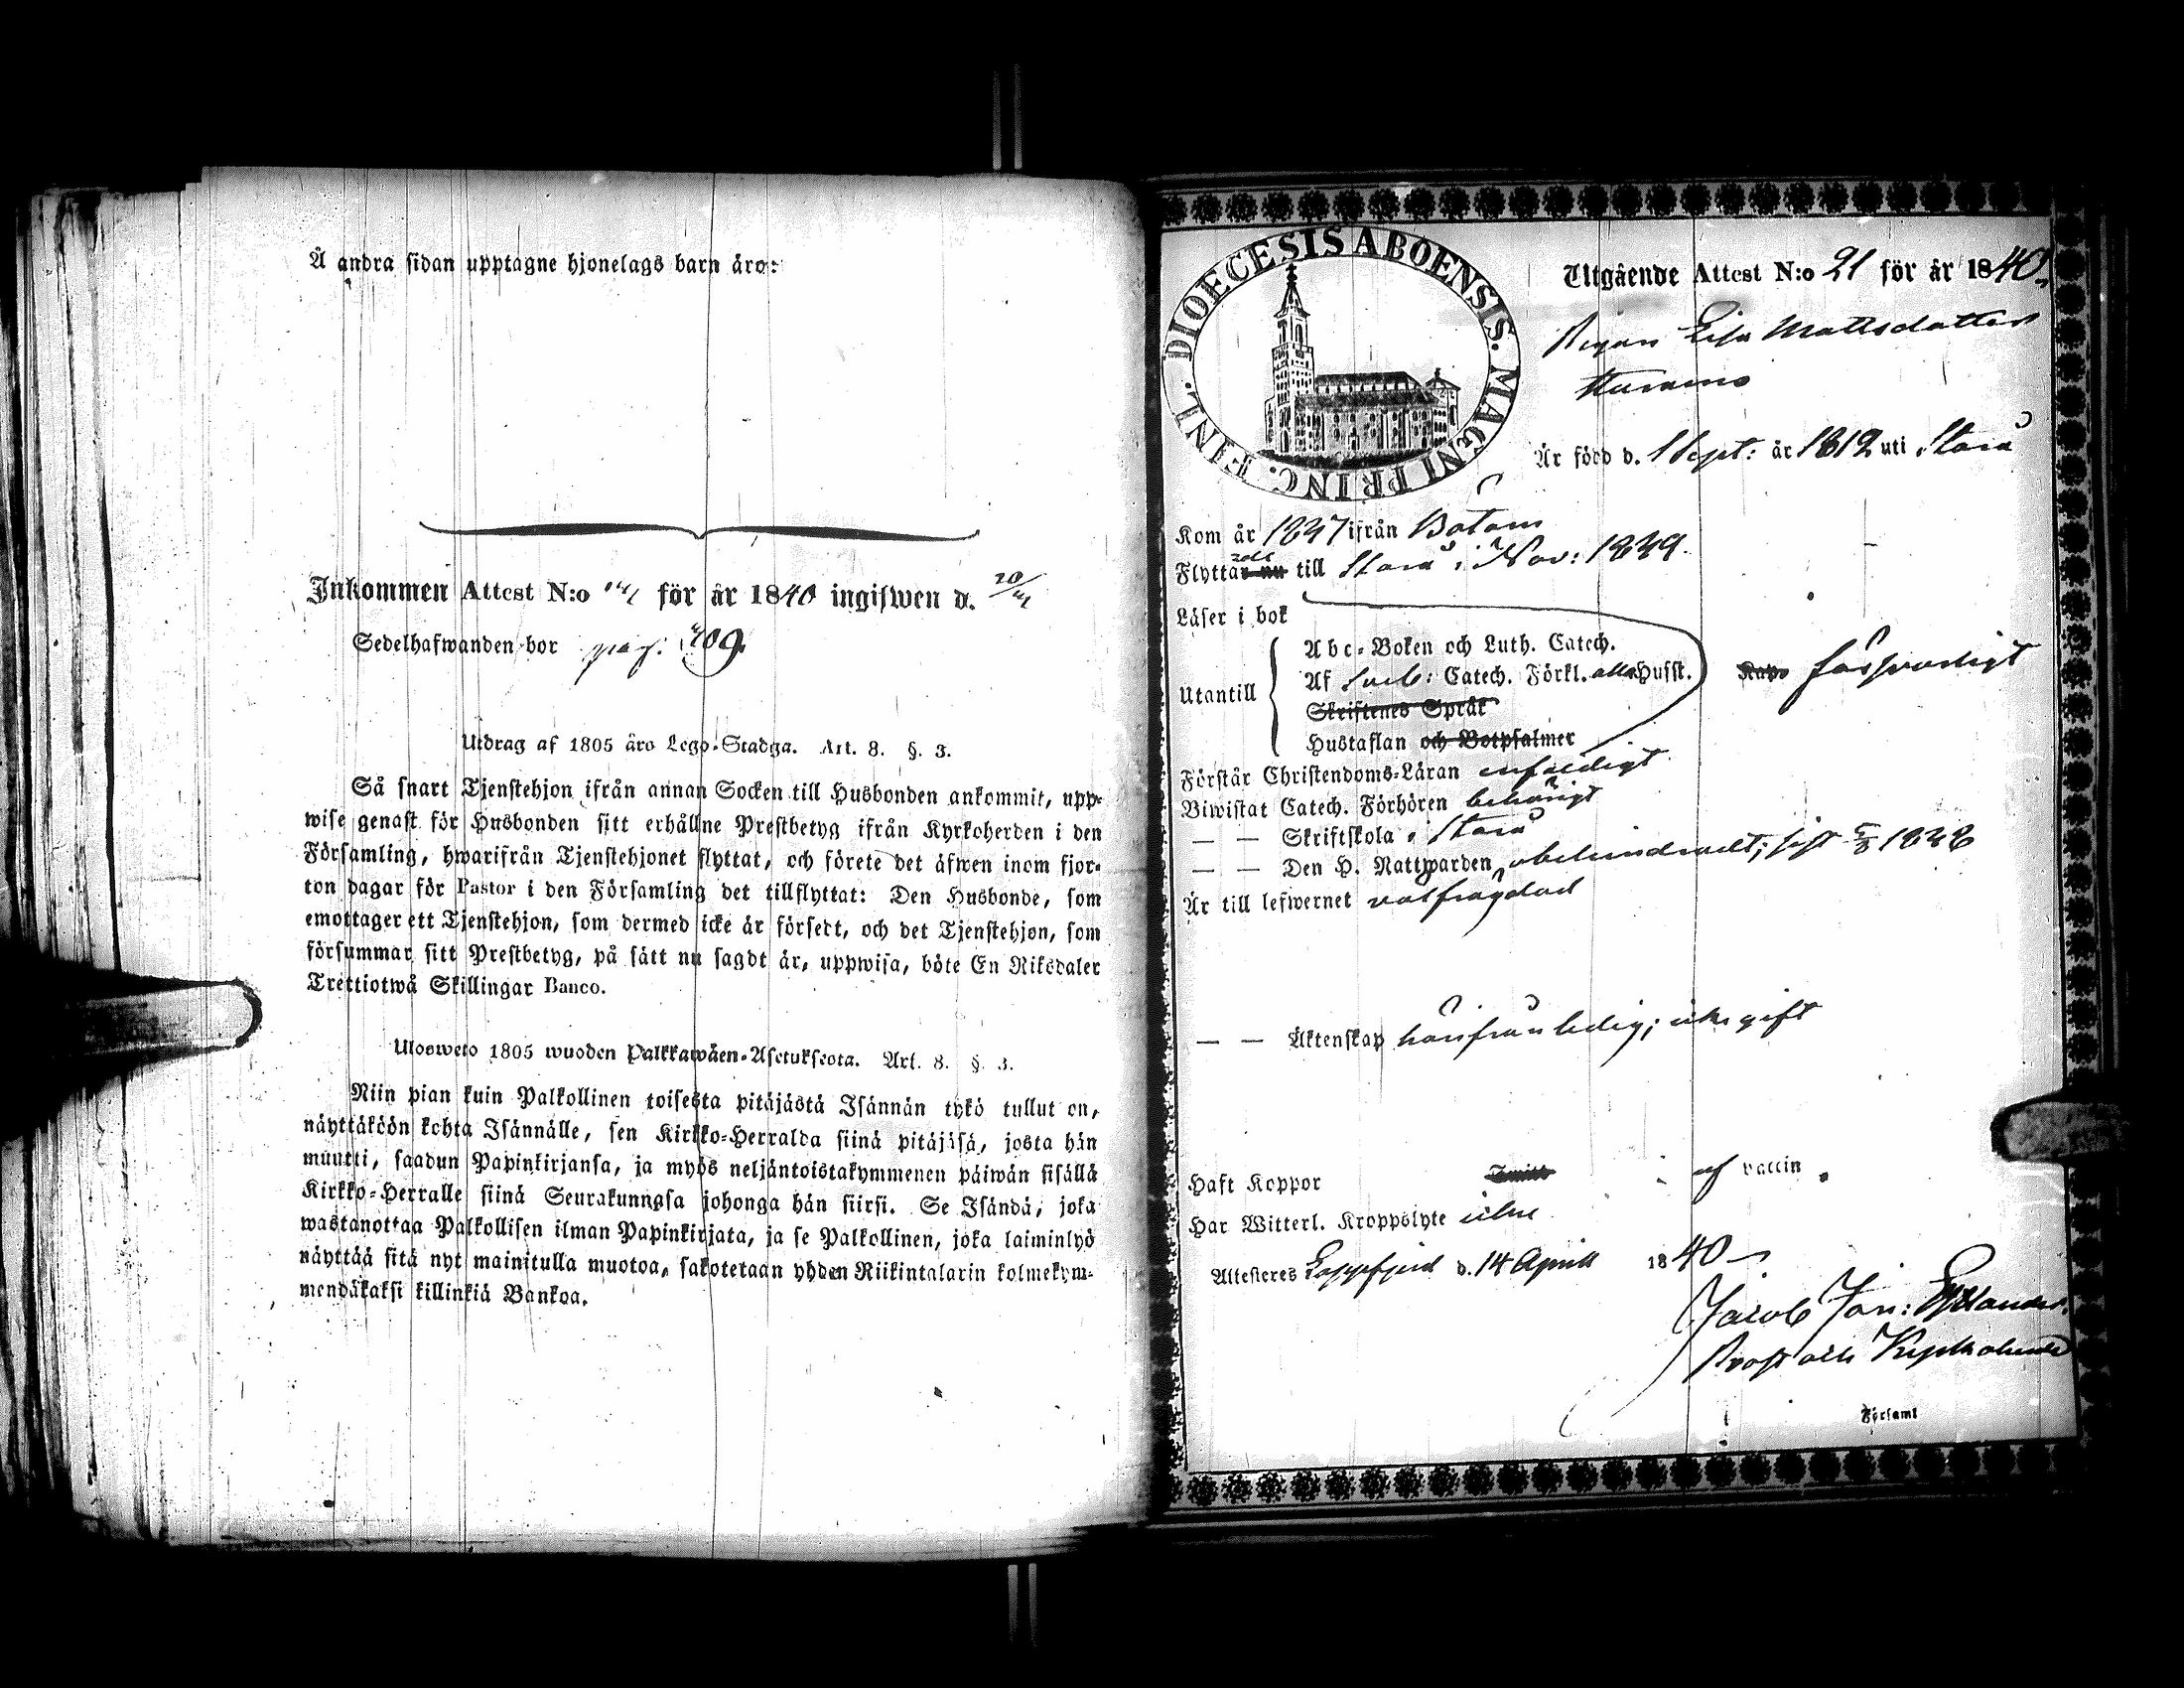 Å andra sidan upptagne hjonelags barn äro:
Inkommen Attest N:o för år 1840 ingifwen d. 20/4
Sedelhafwanden bor pag: 409.
Utdrag af 1805 års Lego-Stadga. Art. 8. §. 3.
Så snart Tjenstehjon ifrån annan Socken till Husbonden ankommit, upp-
wise genast för Husbonden sitt erhållne Prestbetyg ifrån Kyrkoherden i den
Församling, hwarifrån Tjenstehjonet flyttat, och förete det äfwen inom fjor-
ton dagar för Pastor i den Församling det tillflyttat: Den Husbonde, som
emottager ett Tjenstehjon, som dermed icke är försedt, och det Tjenstehjon, som
försummar sitt Prestbetyg, på sätt nu sagdt är, uppwisa, böte En Riksdaler
Trettiotwå Skillingar Banco.
Ulosweto 1805 wuoden Palkkawäen-Asetuksesta. Art. 8. §. 3.
Niin pian kuin Palkollinen toisesta pitäjästä Isännän tykö tullut on,
näyttäköön kohta Isännälle, sen Kirkko-Herralda siinä pitäjäsä, josta hän
muutti, saadun Papinkirjansa, ja myös neljäntoistakymmenen päiwän sisällä
Kirkko-Herralle siinä Seurakunnasa johonga hän siirsi. Se Isändä, joka
wastanottaa Palkollisen ilman Papinkirjata, ja se Palkollinen, joka laiminlyö
näyttää sitä nyt mainitulla muotoa, sakotetaan yhden Riikintalarin kolmekym-
mendäkaksi killinkiä Bankoa.
DIOECESIS ABOENSIS. MAGNI PRINC. FINL.
Utgående Attest N:o 21 för år 1840.
Pigan Lisa Mattsdotter
Är född d. 1 Sept: år 1812 uti Storå
Kom år 1837 ifrån Bötom
Flyttar nu till Storå i Nov: 1839.
Läser i bok
Utantill
Abc-Boken och Luth. Catech.
Af Sveb: Catech. Förkl. alla Hufst.
försvarligt
Skriftenes Språk
Hustaflan och Botpsalmer
Förstår Christendoms-Läran enfaldigt
Biwistat Catech. Förhören behörigt
— — Skriftskola i Storå
— — Den H. Nattwarden obehindradt; sist 5/8 1838
Är till lefwernet välfrägdad
— — Äktenskap härifrån ledig; icke gift
Haft Koppor af vaccin.
Har Witterl. Kroppslyte icke
Attesteres Lappfjerd d. 14 April 1840
Jacob Jon:
Prost och Kyrkoherde
Församl